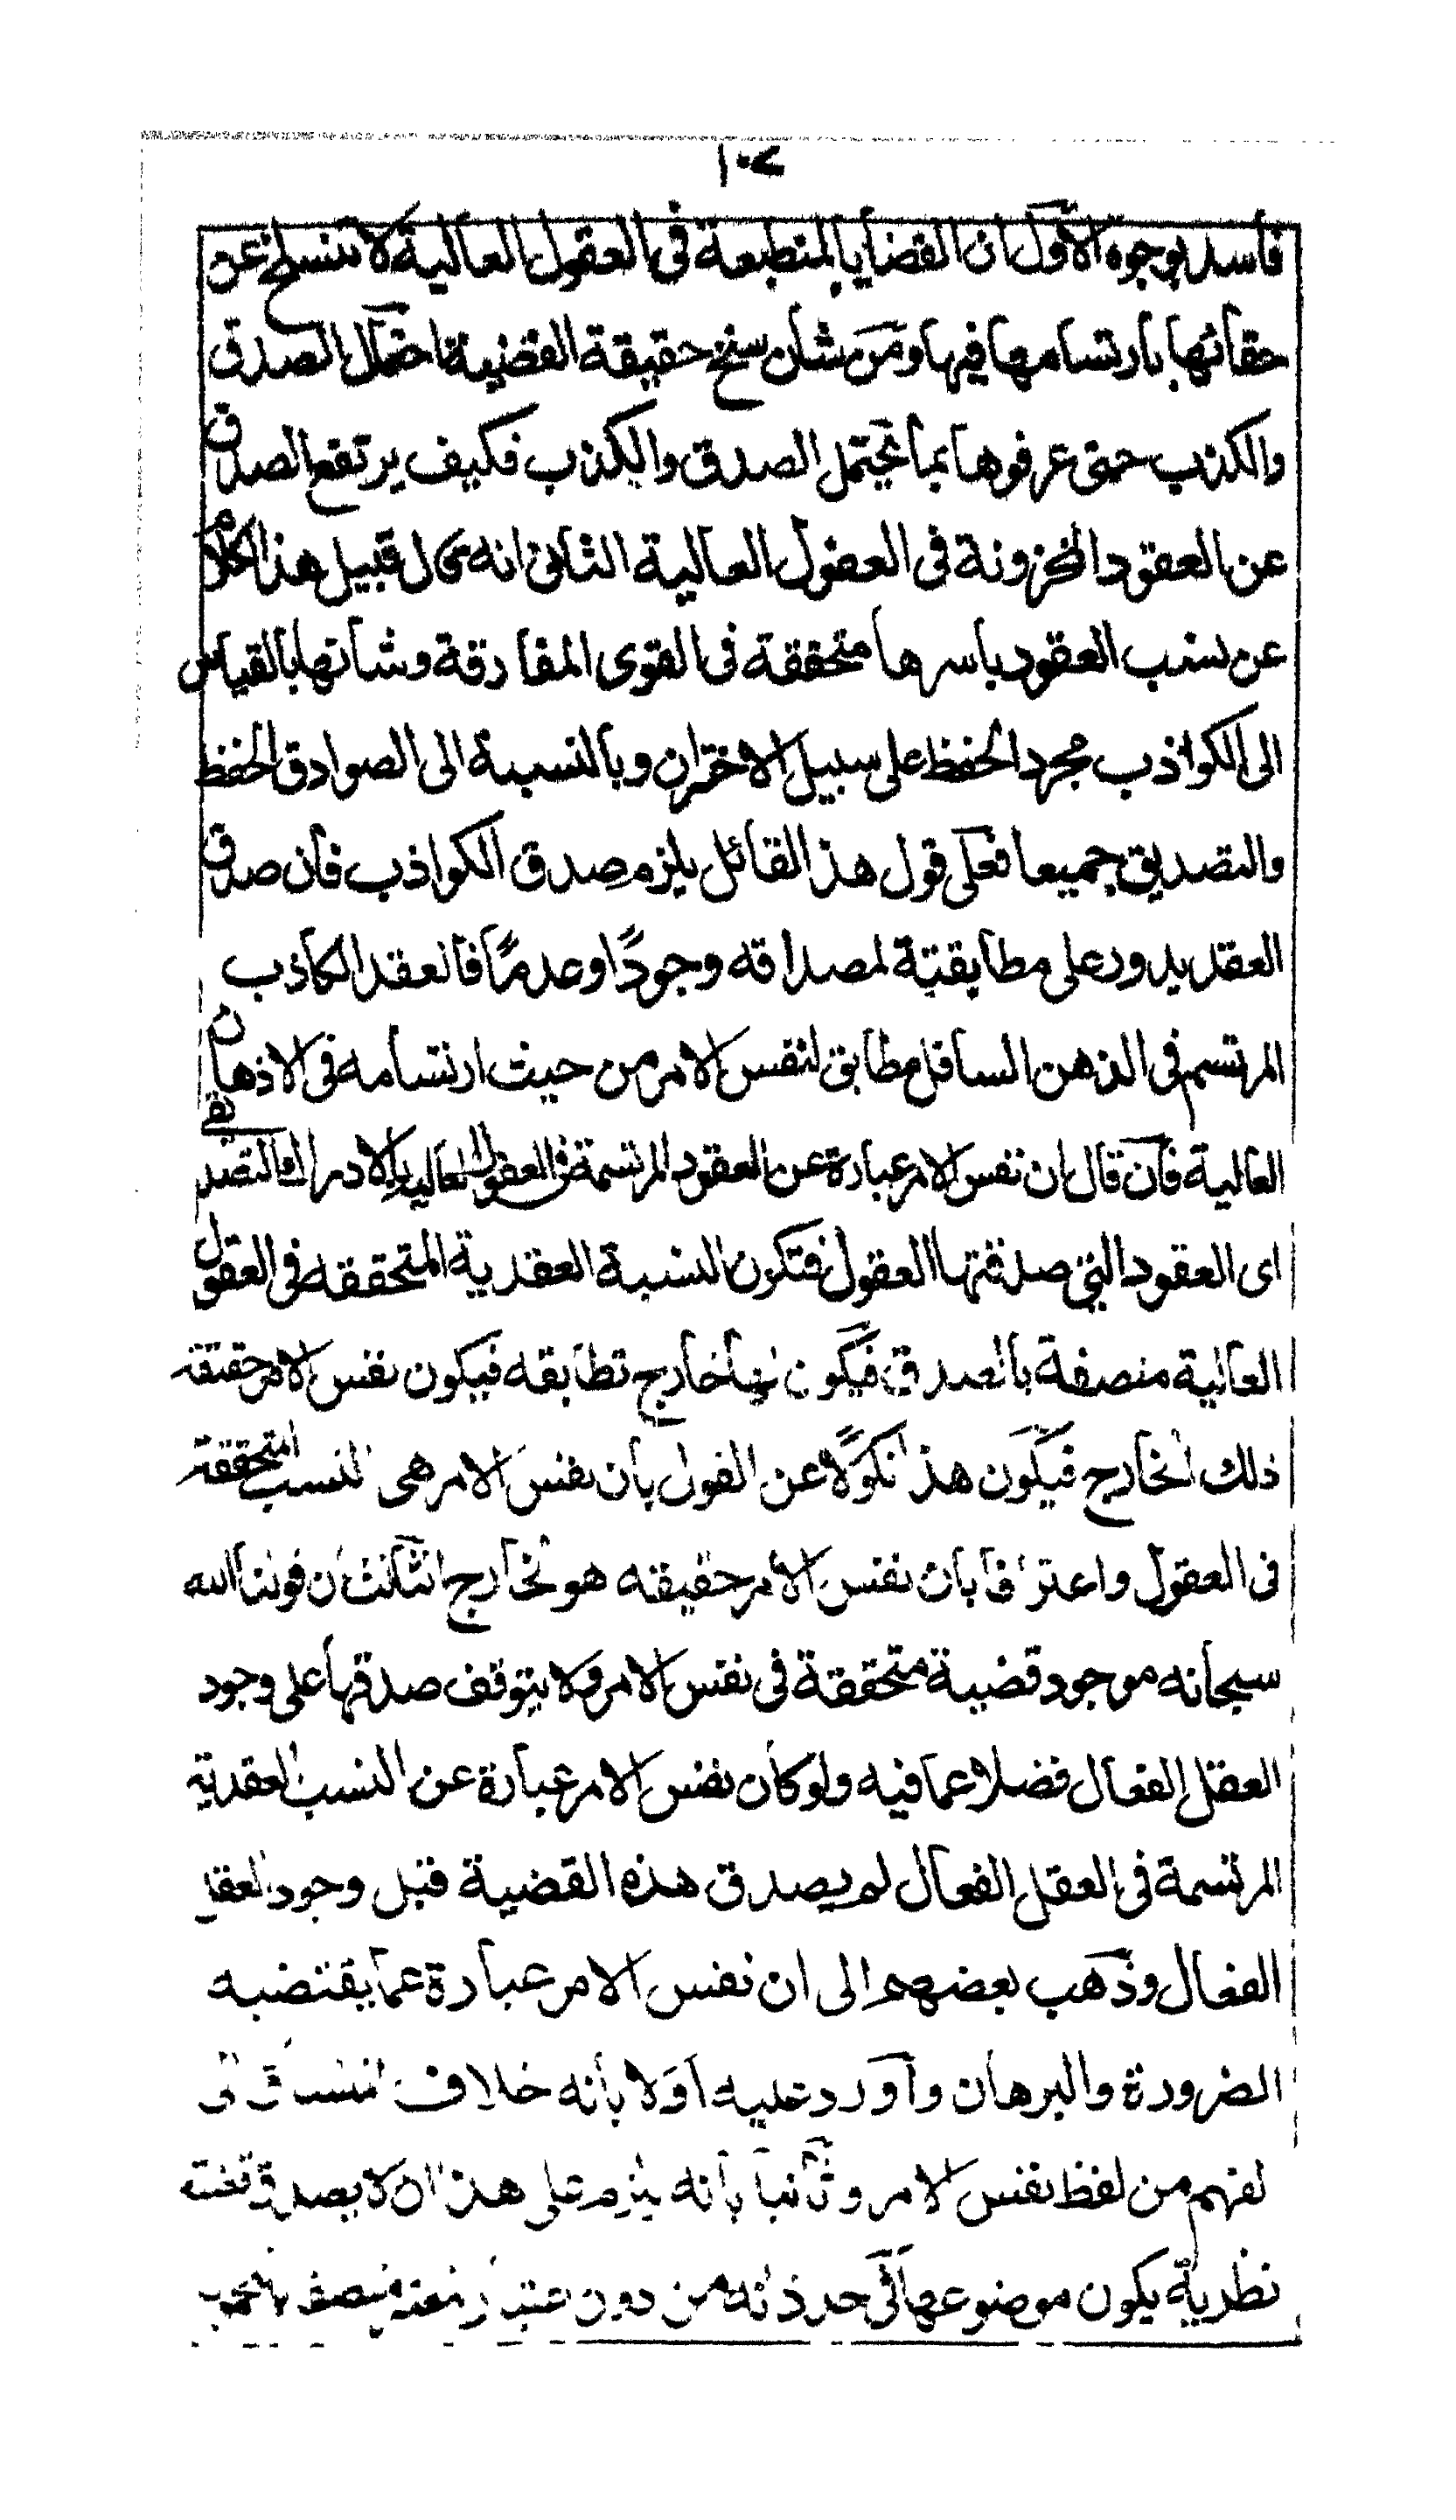 ١٠٧
فاسد بوجوه الاول ان القضايا المنطبعة فى العقول العالية لا تنسلخ عن
حقائقها بارتسامها فيها ومن شان سنخ حقيقة القضية احتمال الصدق
والكذب حتى عرفوها بما يحتمل الصدق والكذب فكيف يرتفع الصدق
عن العقود المخزونة فى العقول العالية الثانى انه قال قبيل هذا الكلام
عن نسب العقود باسرها متحققة فى القوى المفارقة وشانها بالقياس
الى الكواذب مجرد الحفظ على سبيل الاختزان وبالنسبة الى الصوادق الحفظ
والتصديق جميعا فعلى قول هذا القائل يلزم صدق الكواذب فان صدق
العقد يدور على مطابقته لمصداقه وجودًا وعدمًا فالعقد الكاذب
المرتسم فى الذهن السافل مطابق لنفس الامر من حيث ارتسامه فى الاذهان
العالية فان قال ان نفس الامر عبارة عن العقود المرتسمة فى العقول العالية بالادراك التصديقى
اى العقود التى صدقتها العقول فتكون النسبة العقدية المتحققه فى العقول
العالية متصفة بالصدق فيكون لها خارج تطابقه فيكون نفس الامر حقيقة
ذلك الخارج فيكون هذا نكولًا عن القول بان نفس الامر هى النسب المتحققة
فى العقول واعترافا بان نفس الامر حقيقه هو الخارج الثالث ان قولنا الله
سبحانه موجود قضية متحققة فى نفس الامر ولا يتوقف صدقها على وجود
العقل الفعال فضلا عما فيه ولو كان نفس الامر عبارة عن النسب العقدية
المرتسمة فى العقل الفعال لم يصدق هذه القضية قبل وجود العقل
الفعال وذهب بعضهم الى ان نفس الامر عبارة عما يقتضيه
الضرورة والبرهان واورد عليه اولا بانه خلاف
لفهم من لفظ نفس الامر وثانيا بانه يلزم على هذا ان لا يصدق
نظرية يكون موضوعها فى حد ذاته من دون